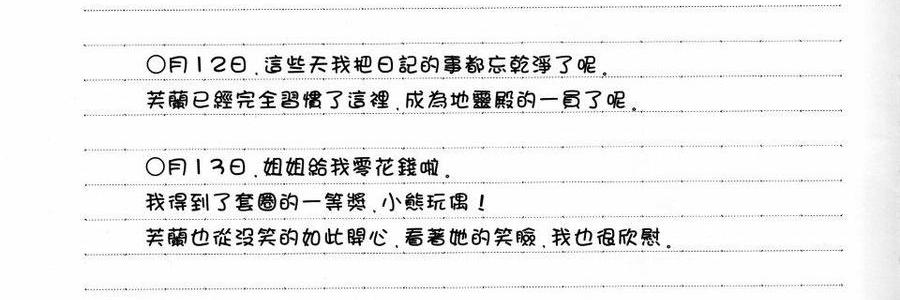 ○月12日,這些天我把日記的事都忘乾淨了呢。
芙蘭已經完全習慣了這裡,成為地靈殿的一員了呢。
○月13日,姐姐給我零花錢啦。
我得到了套圈的一等獎,小熊玩偶!
芙蘭也從沒笑的如此開心,看著她的笑臉,我也很欣慰。